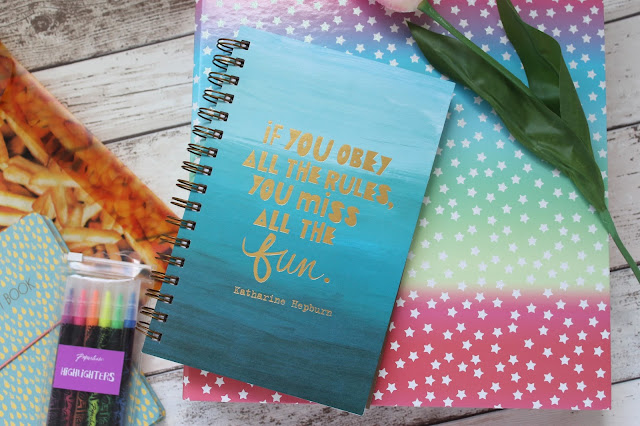 IF YOU OBEY
ALL THE RULES,
YOU MISS
ALL THE
fun.
Katharine Hepburn
BOOK
Paperchase
HIGHLIGHTERS